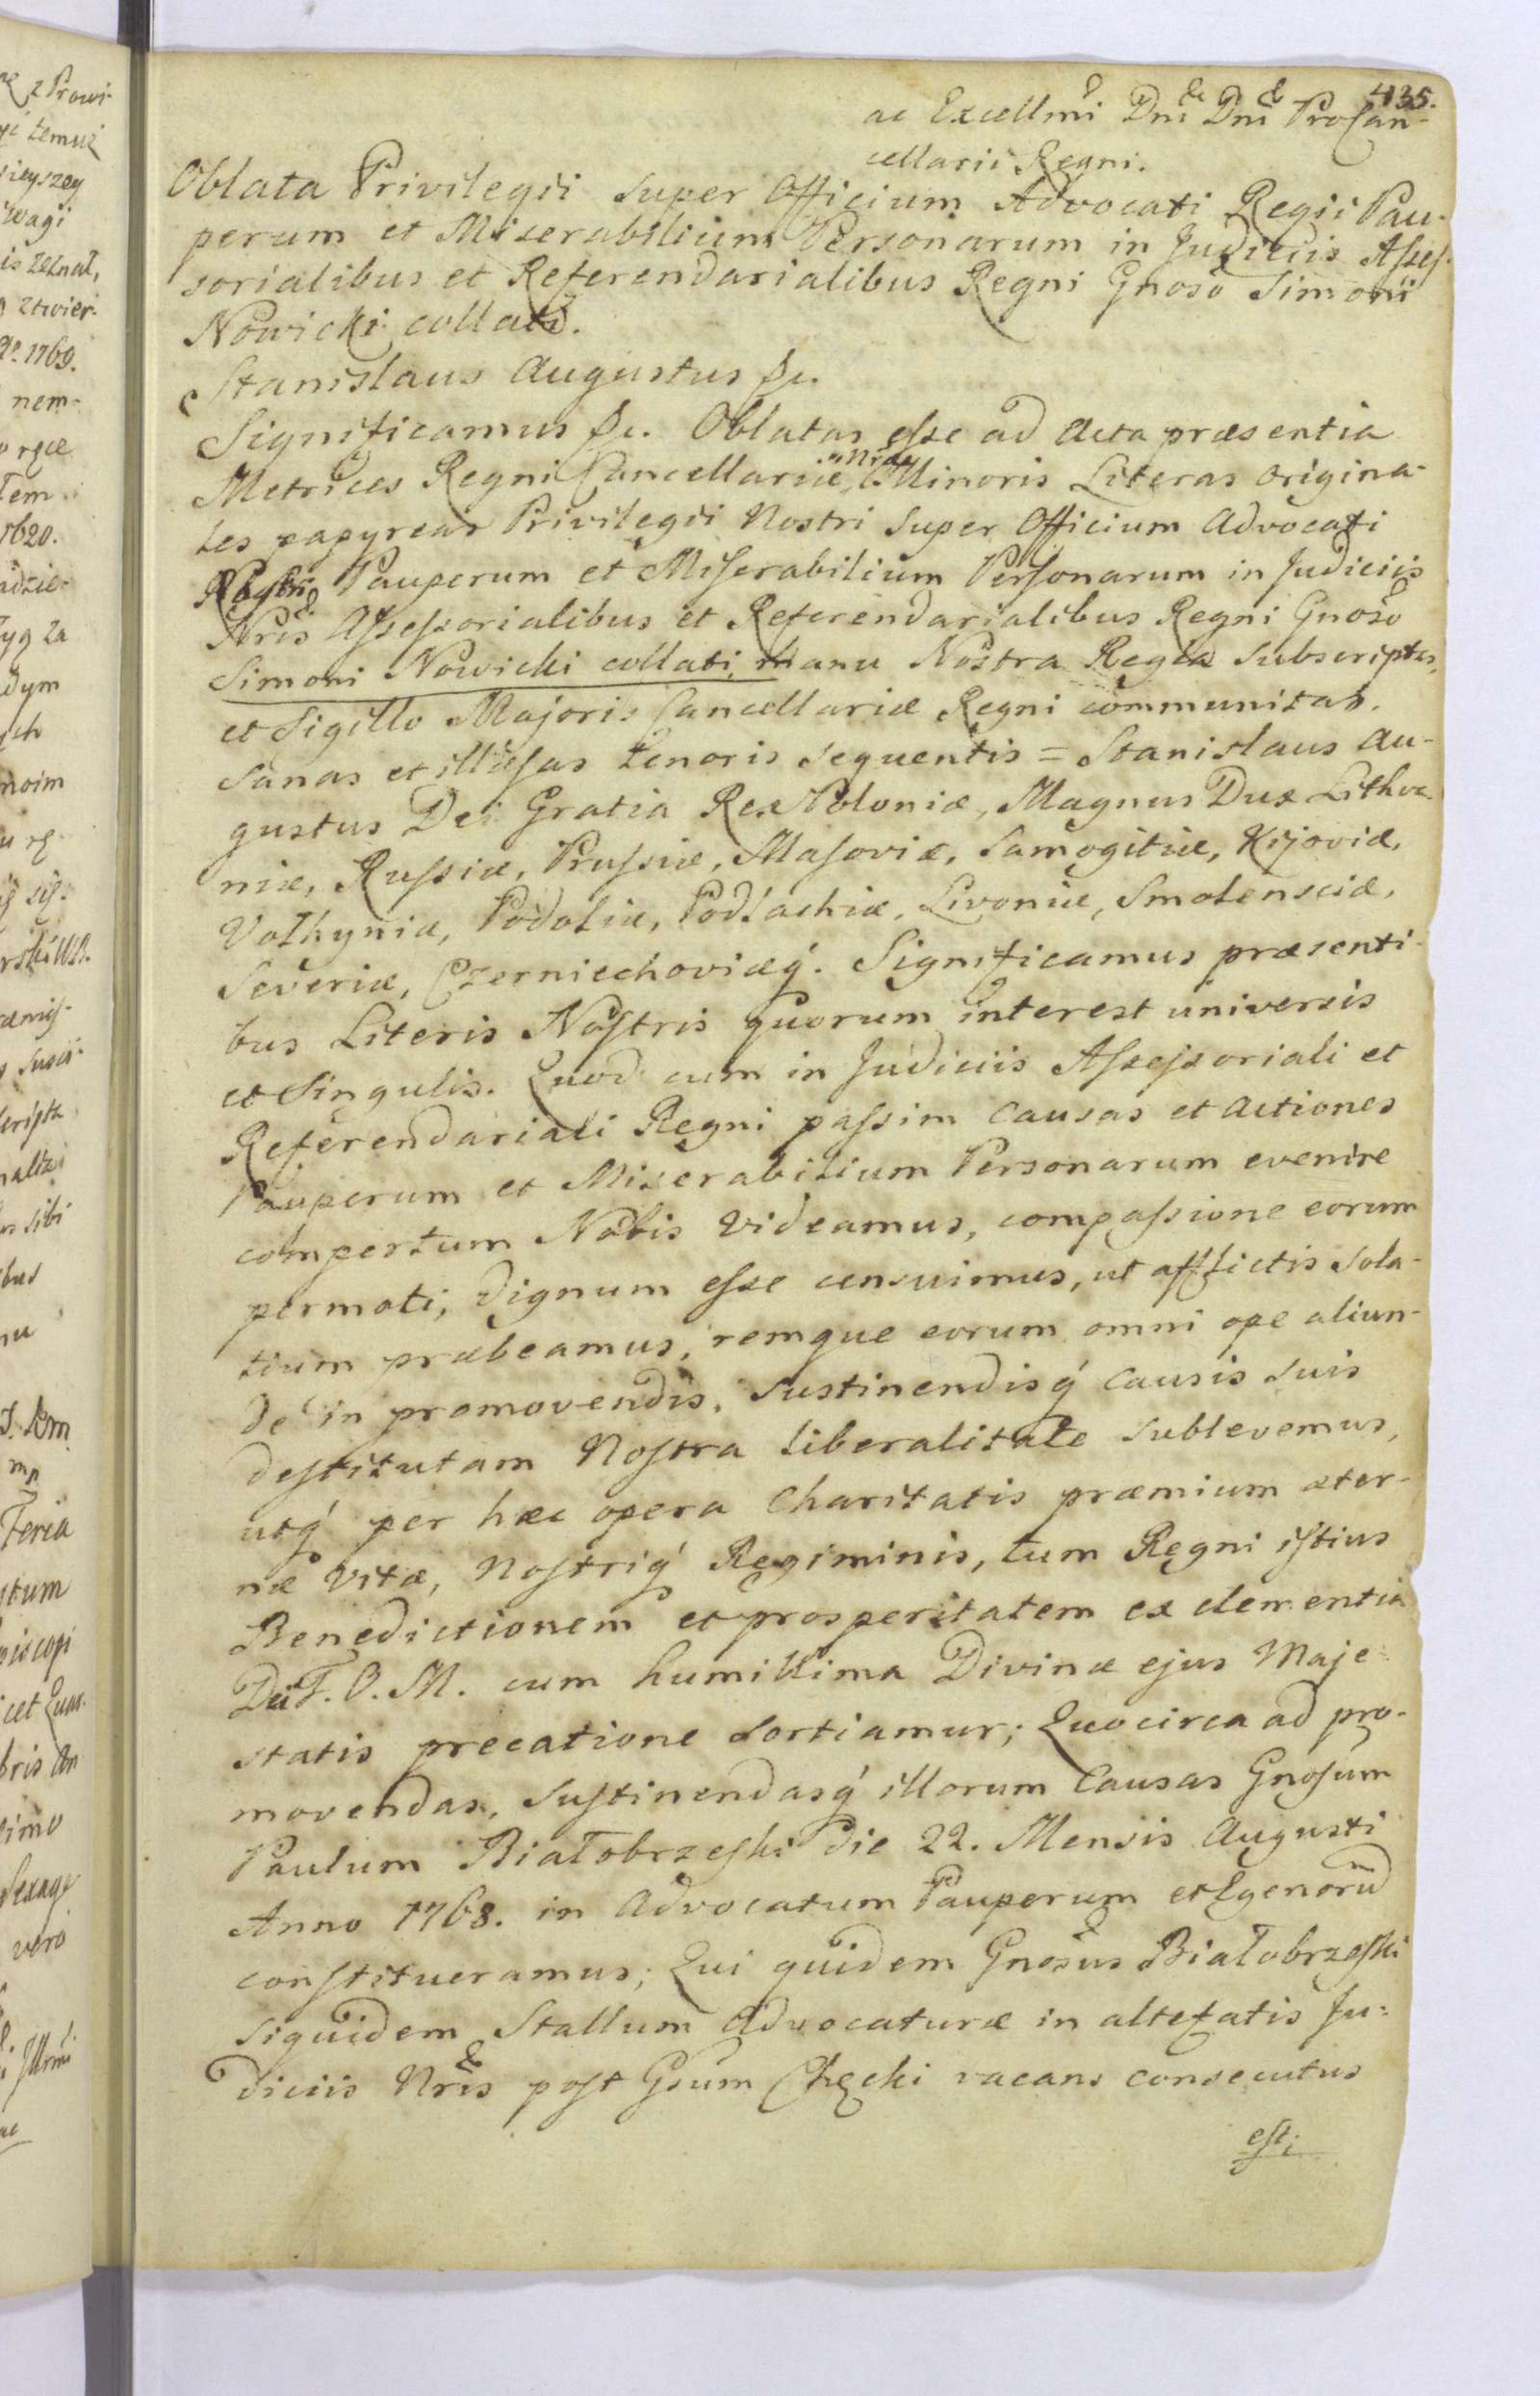 435.
ac Excellmi Dni Dni ProCan-
cellarii Regni.
Oblata Privilegii super Officium Advocati Regii Pau-
perum et Miserabilium Personarum in Judiciis Asses-
sorialibus et Referendarialibus Regni Gnoso Simoni
Nowicki collati.
Stanislaus Augustus &c.
Significamus &c. Oblatas esse ad Acta præsentia
Metrices Regni Cancellariæ Nræ Minoris Literas origina-
les papyreas Privilegii Nostri super Officium Advocati
Pauperum et Miserabilium Personarum in Judiciis
Nris Assessorialibus et Referendarialibus Regni Gnoso
Simoni Nowicki collati, manu Nostra Regia subscriptas,
et Sigillo Majoris Cancellariæ Regni communitas.
sanas et illæsas tenoris sequentis = Stanislaus Au-
gustus Dei Gratia Rex Poloniæ, Magnus Dux Lithva-
niæ, Russiæ, Prussiæ, Masoviæ, Samogitiæ, Kijoviæ,
Volhyniæ, Podoliæ, Podlachiæ, Livoniæ, Smolensciæ,
Severiæ, Czerniechoviæq́. Significamus præsenti-
bus Literis Nostris quorum interest universis
et Singulis. Quod cum in Judiciis Assessoriali et
Referendariali Regni passim Causas et Actiones
Pauperum et Miserabilium Personarum evenire
compertum Nobis videamus, compassione eorum
permoti, dignum esse censuimus, ut afflictis sola-
tium præbeamus, remque eorum omni ope aliun-
de in promovendis, sustinendisq́ Causis suis
destitutam Nostra liberalitate sublevemus,
utq́ per hæc opera Charitatis præmium æter-
næ vitæ, Nostriq́ Regiminis, tum Regni istius
Benedictionem et prosperitatem ex clementia
Dei T. O. M. cum humillima Divinæ ejus Maje-
statis precatione sortiamur; Quocirca ad pro-
movendas, sustinendasq́ illorum Causas Gnosum
Paulum Białobrzeski die 22. Mensis Augusti
Anno 1768. in Advocatum Pauperum et Egenorum
constitueramus; Qui quidem Gnosus Białobrzeski
siquidem Stallum Advocaturæ in altefatis Ju-
diciis Nris post Gsum Chęcki vacans consecutus
est;